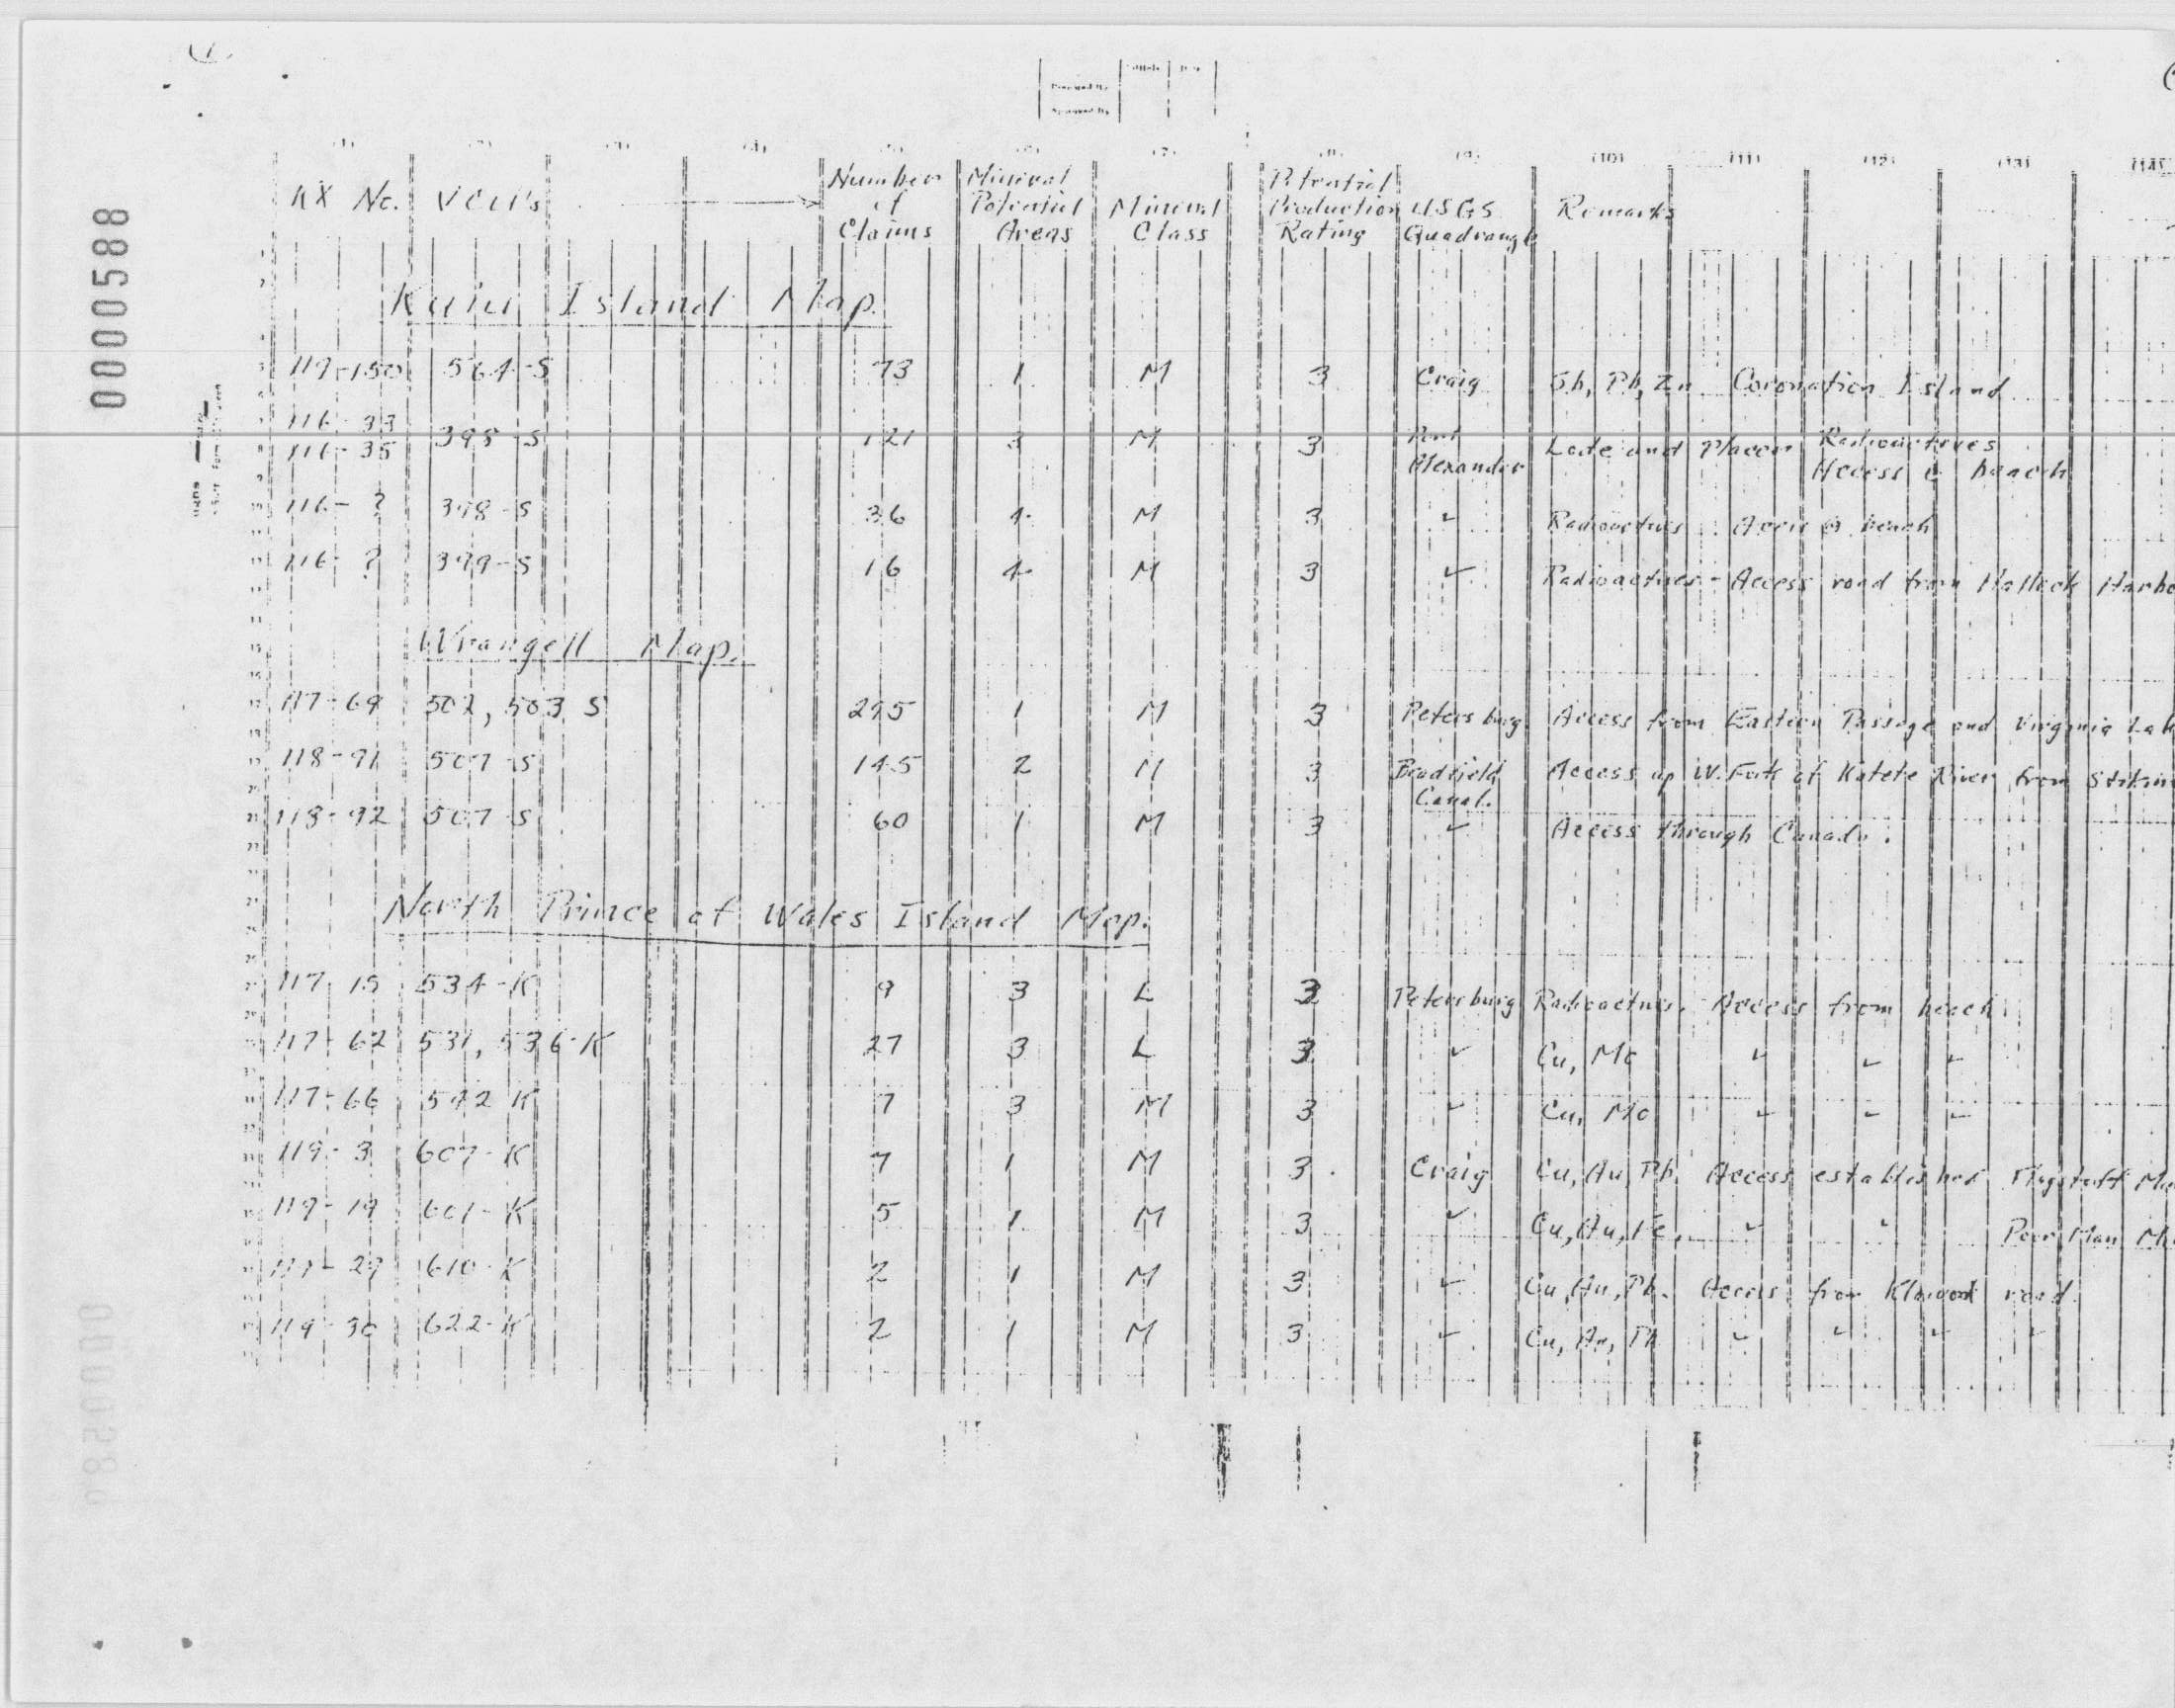 0000588
KX No. VCU's Number of Claims Mineral Potential Areas Mineral Class Potential Production Rating USGS Quadrangle Remarks
Kuiu Island Map.
119-150 564-S 73 1 M 3 Craig Sb, Pb, Zn Coronation Island
116-33
116-35 398-S 121 3 M 3 Port Alexander Lode and Placer Radioactives Access @ beach
116-? 398-S 36 4 M 3 ✓ Radioactives Access @ beach
116-? 399-S 16 4 M 3 ✓ Radioactives - Access road from Halleck Harbo
Wrangell Map.
117-69 502, 503 S 295 1 M 3 Petersburg Access from Eastern Passage and Virginia Lak
118-91 507-S 145 2 M 3 Bradfield Canal. Access up W. Fork of Katete River from Stikin
118-92 507-S 60 1 M 3 ✓ Access through Canada.
North Prince of Wales Island Map.
117-15 534-K 9 3 L 3 Petersburg Radioactives. Access from beach
117-62 531, 536-K 27 3 L 3 ✓ Cu, Mo ✓ ✓ ✓
117-66 542 K 7 3 M 3 ✓ Cu, Mo ✓ ✓ ✓
119-3 607-K 7 1 M 3 Craig Cu, Au, Pb. Access established Flagstaff M
119-19 601-K 5 1 M 3 ✓ Cu, Au, Fe. ✓ ✓ Poor Man M
119-29 610-K 2 1 M 3 ✓ Cu, Au, Pb. Access from Klawock road.
119-30 622-K 2 1 M 3 ✓ Cu, Au, Pb ✓ ✓ ✓ ✓